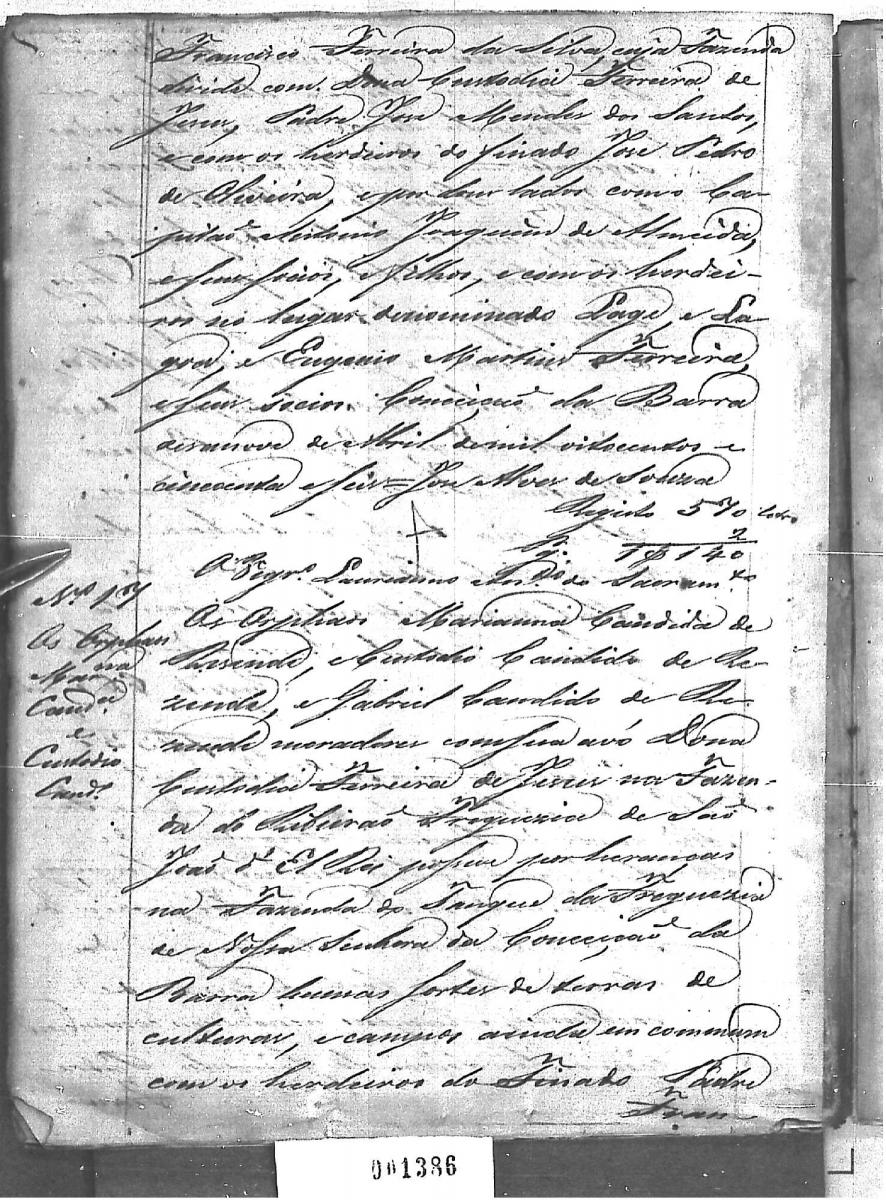 Francisco Ferreira da Silva, cuja Fazenda
divide com Dona Custodia Ferreira de
Jesus, Padre José Mendes dos Santos,
e com os herdeiros do finado José Pedro
de Oliveira, e por hum lado com o Ca-
pitaõ Antonio Joaquim de Almeida,
e seus socios, e filhos, e com os herdei-
ros no lugar denominado Lage, e La-
goa, e Eugenio Martins Ferreira,
e seus socios. Conceiçaõ da Barra
desanove de Abril de mil oitocentos e
cincoenta e seis = José Alves de Souza
Registo 570 letras
Pg. 1$140
O Vigr.º Lauriano Ant.º do Sacram.to
N.º 17
Os Orphaos
Mar.na
Cand.a
e
Custodio
Cand.º
Os Orphaos Marianna Candida de
Resende, e Custodio Candido de Re-
zende, e Gabriel Candido de Re-
zende moradores com sua avó Dona
Custodia Ferreira de Jesus na Fazen-
da do Ribeiraõ Freguezia de Saõ
Joaõ d'El Rei, possue por heranças
na Fazenda do Tanque da Freguezia
de Nossa Senhora da Conceiçaõ da
Barra humas sortes de terras de
culturas, e campos ainda em commum
com os herdeiros do Finado Padre
Fran
001386